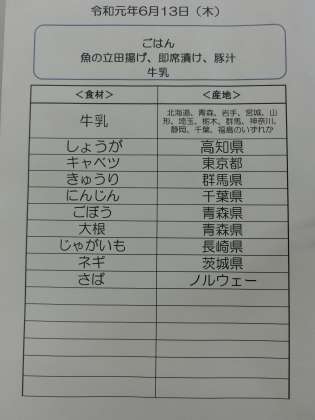 令和元年6月13日（木）
ごはん
魚の立田揚げ、即席漬け、豚汁
牛乳
＜食材＞ ＜産地＞
牛乳 北海道、青森、岩手、宮城、山
形、埼玉、栃木、群馬、神奈川、
静岡、千葉、福島のいずれか
しょうが 高知県
キャベツ 東京都
きゅうり 群馬県
にんじん 千葉県
ごぼう 青森県
大根 青森県
じゃがいも 長崎県
ネギ 茨城県
さば ノルウェー